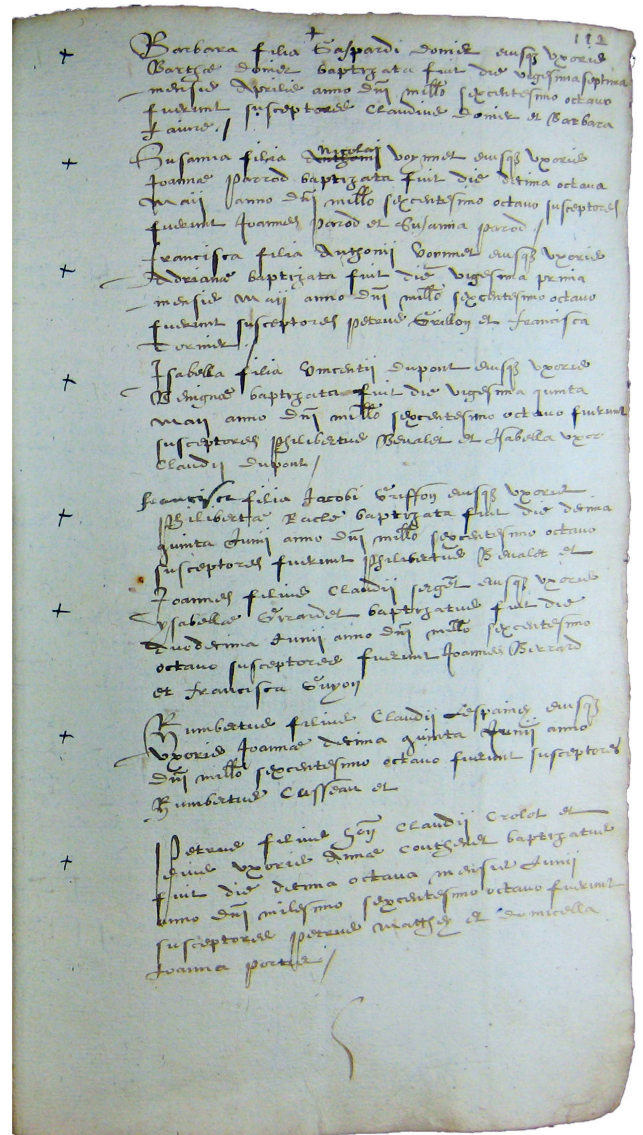 112
Barbara filia Gaspardi Domier eiusq uxoris
Barthæ Domier baptizata fuit die vigesima septima
mensis Aprilis anno dni millo sexcentesimo octavo
fuerunt susceptores Claudius Domier et Barbara
Susanna filia Anthonii Nicolai voynnet eiusq uxoris
Joannæ parrod baptizata fuit die decima octava
Maii anno dni millo sexcentesimo octavo susceptores
fuerunt Joannes parod et Susanna parod /
Francisca filia Anthonii voynnet eiusq uxoris
Adrianæ baptizata fuit die vigesima prima
mensis Maii anno dni millo sexcentesimo octavo
fuerunt susceptores petrus Grillon et Francisca
Isabella filia Vincentii dupont eiusq uxoris
Benignæ baptizata fuit die vigesima quinta
Maii anno dni millo sexcentesimo octavo fuerunt
susceptores philibertus Benalet et Isabella uxor
Claudii dupont /
filia Jacobi Griffon eiusq uxoris
philibertæ Racle baptizata fuit die decima
quinta Junii anno dni millo sexcentesimo octavo
susceptores fuerunt philibertus Benalet et
Joannes filius Claudii serget eiusq uxoris
ysabellæ Girardet baptizatus fuit die
duodecima Junii anno dni millo sexcentesimo
octavo susceptores fuerunt Joannes Berrard
et Francisca Guyon
Humbertus filius Claudii Lespaing eiusq
uxoris Joannæ decima quinta Junii anno
dni millo sexcentesimo octavo fuerunt susceptores
Humbertus Casseau et
Petrus filius Claudii Crolot et
eius uxoris Annæ Couthenet baptizatus
fuit die decima octava mensis Junii
anno dni milesimo sexcentesimo octavo fuerunt
susceptores petrus Matthey et domicella
Joanna /